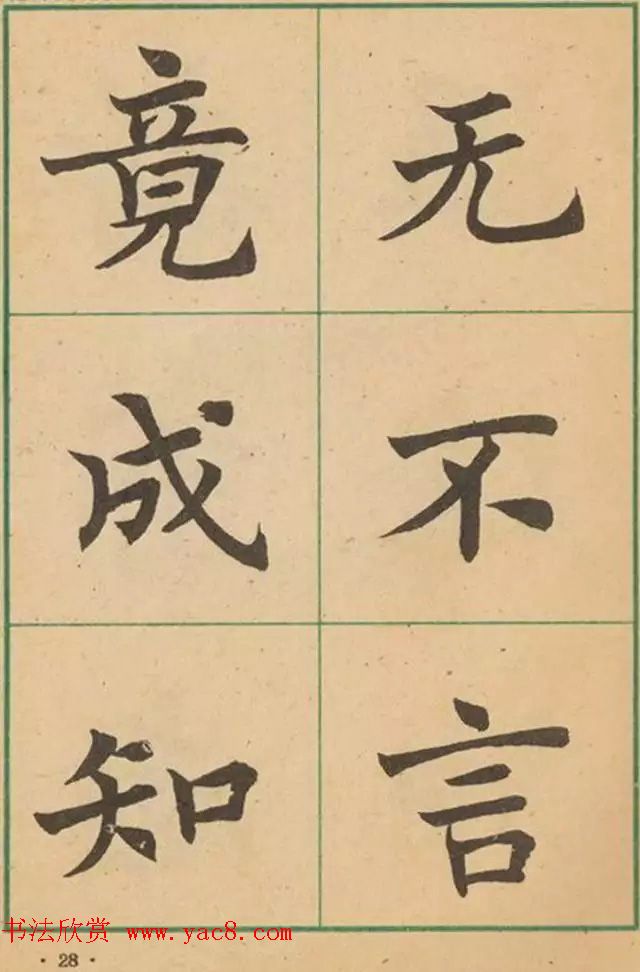 无不言
竟成知
书法欣赏 www.yac8.com
· 28 ·